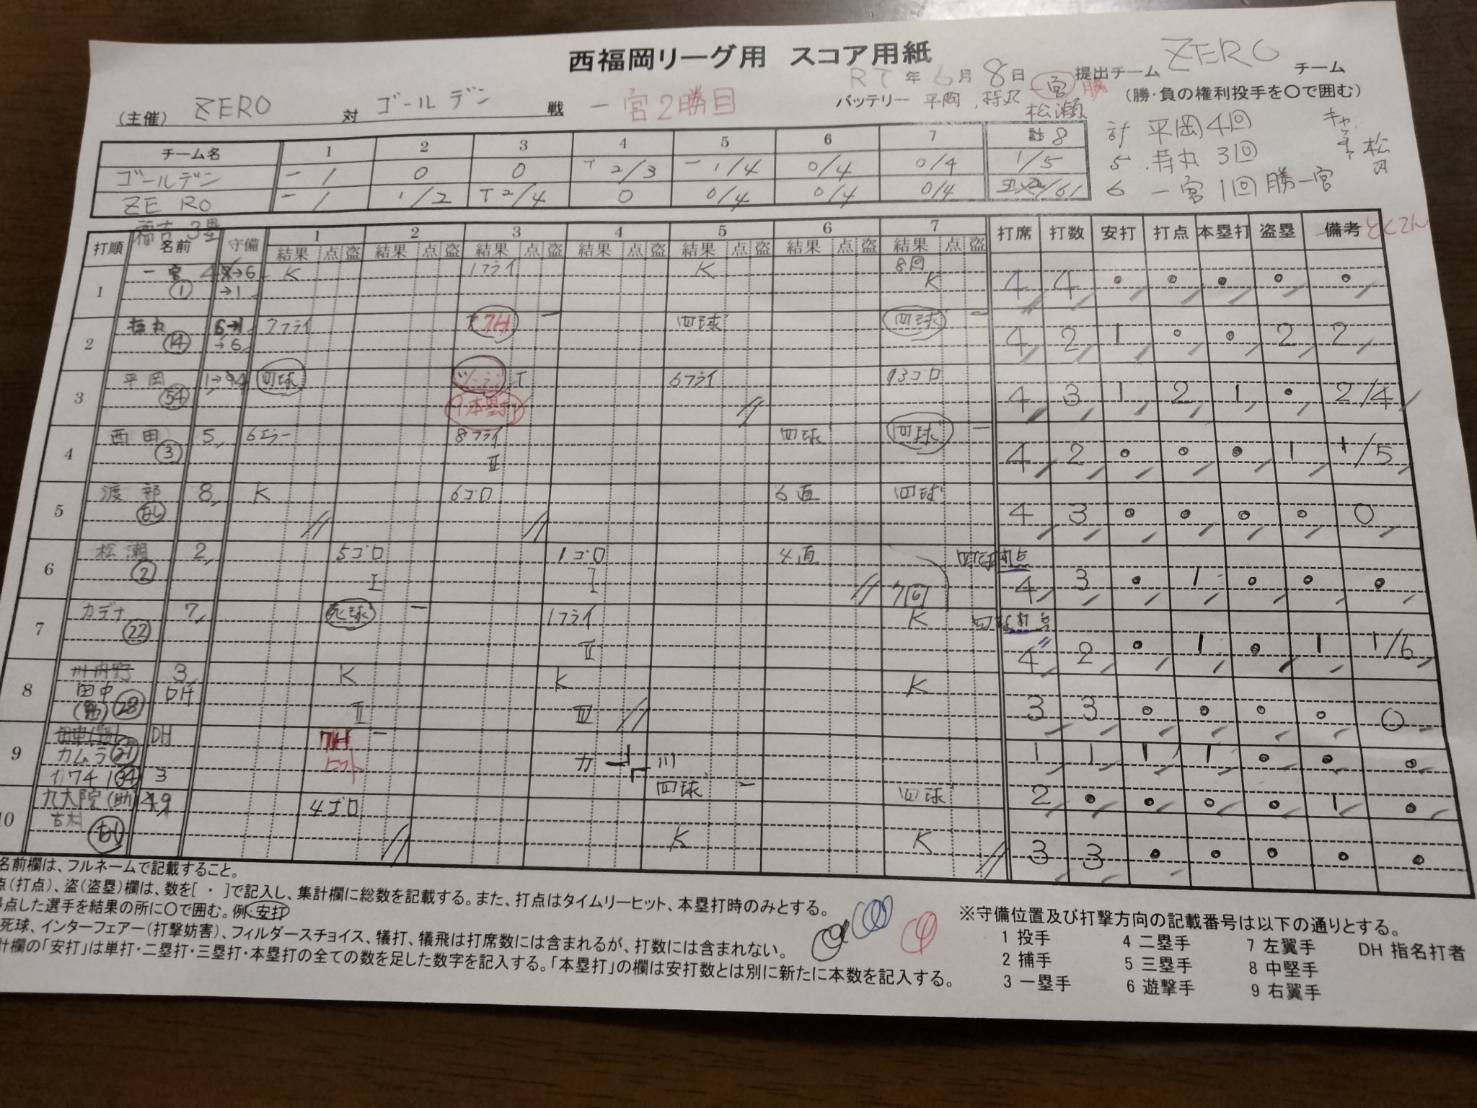 西福岡リーグ用 スコア用紙
R7 年 6 月 8 日 提出チーム ZERO チーム
(主催) ZERO 対 ゴールデン 戦 一宮2勝目
バッテリー 平岡 一宮 勝 松瀬 (勝・負の権利投手を〇で囲む)
計 平岡 4回
5 3回
6 一宮 1回 勝一宮
チーム名 1 2 3 4 5 6 7 計 8
ゴールデン 一 1 0 0 T 2/3 一 1/4 0/4 0/4 1/5
ZERO 一 1 1/2 T 2/4 0 0/4 0/4 0/4
打順 名前 守備 1 2 3 4 5 6 7 打席 打数 安打 打点 本塁打 盗塁 備考 とくてん
結果 点 盗 結果 点 盗 結果 点 盗 結果 点 盗 結果 点 盗 結果 点 盗 結果 点 盗
1 一宮 ① →6 →1 K 1フライ K 8回 K 4 4 0 0 0 0 0
2 ⑭ →6 7フライ 7H 一 四球 四球 一 4 2 1 0 0 2 2
3 平岡 54 四球 9本塁打 T 6フライ 13ゴロ 4 3 1 2 1 0 2/4
4 西田 ③ 5 6エラー 8フライ II 四球 四球 一 4 2 0 0 0 1 1/5
5 渡部 なし 8 K 6ゴロ 6直 四球 4 3 0 0 0 0 0
6 松瀬 ② 2 5ゴロ I 1ゴロ I 4直 7回 四球打点 4 3 0 1 0 0 0
7 カデナ ㉒ 7 死球 一 1フライ II K 四球打点 4 2 0 1 0 1 1/6
8 田中 ㉘ 3 DH K II K III K 3 3 0 0 0 0 0
9 カムラ ㉑ DH 7H ヒット 一 1 1 1 1 0 0 0
34 3 四球 一 四球 2 0 0 0 0 1 0
10 九大院(助 古木 なし 4ゴロ K K 3 3 0 0 0 0 0
名前欄は、フルネームで記載すること。
点(打点)、盗(盗塁)欄は、数を[ ・ ]で記入し、集計欄に総数を記載する。また、打点はタイムリーヒット、本塁打時のみとする。
得点した選手を結果の所に〇で囲む。例 安打
死球、インターフェアー(打撃妨害)、フィルダースチョイス、犠打、犠飛は打席数には含まれるが、打数には含まれない。
計欄の「安打」は単打・二塁打・三塁打・本塁打の全ての数を足した数字を記入する。「本塁打」の欄は安打数とは別に新たに本数を記入する。
※守備位置及び打撃方向の記載番号は以下の通りとする。
1 投手 4 二塁手 7 左翼手 DH 指名打者
2 捕手 5 三塁手 8 中堅手
3 一塁手 6 遊撃手 9 右翼手